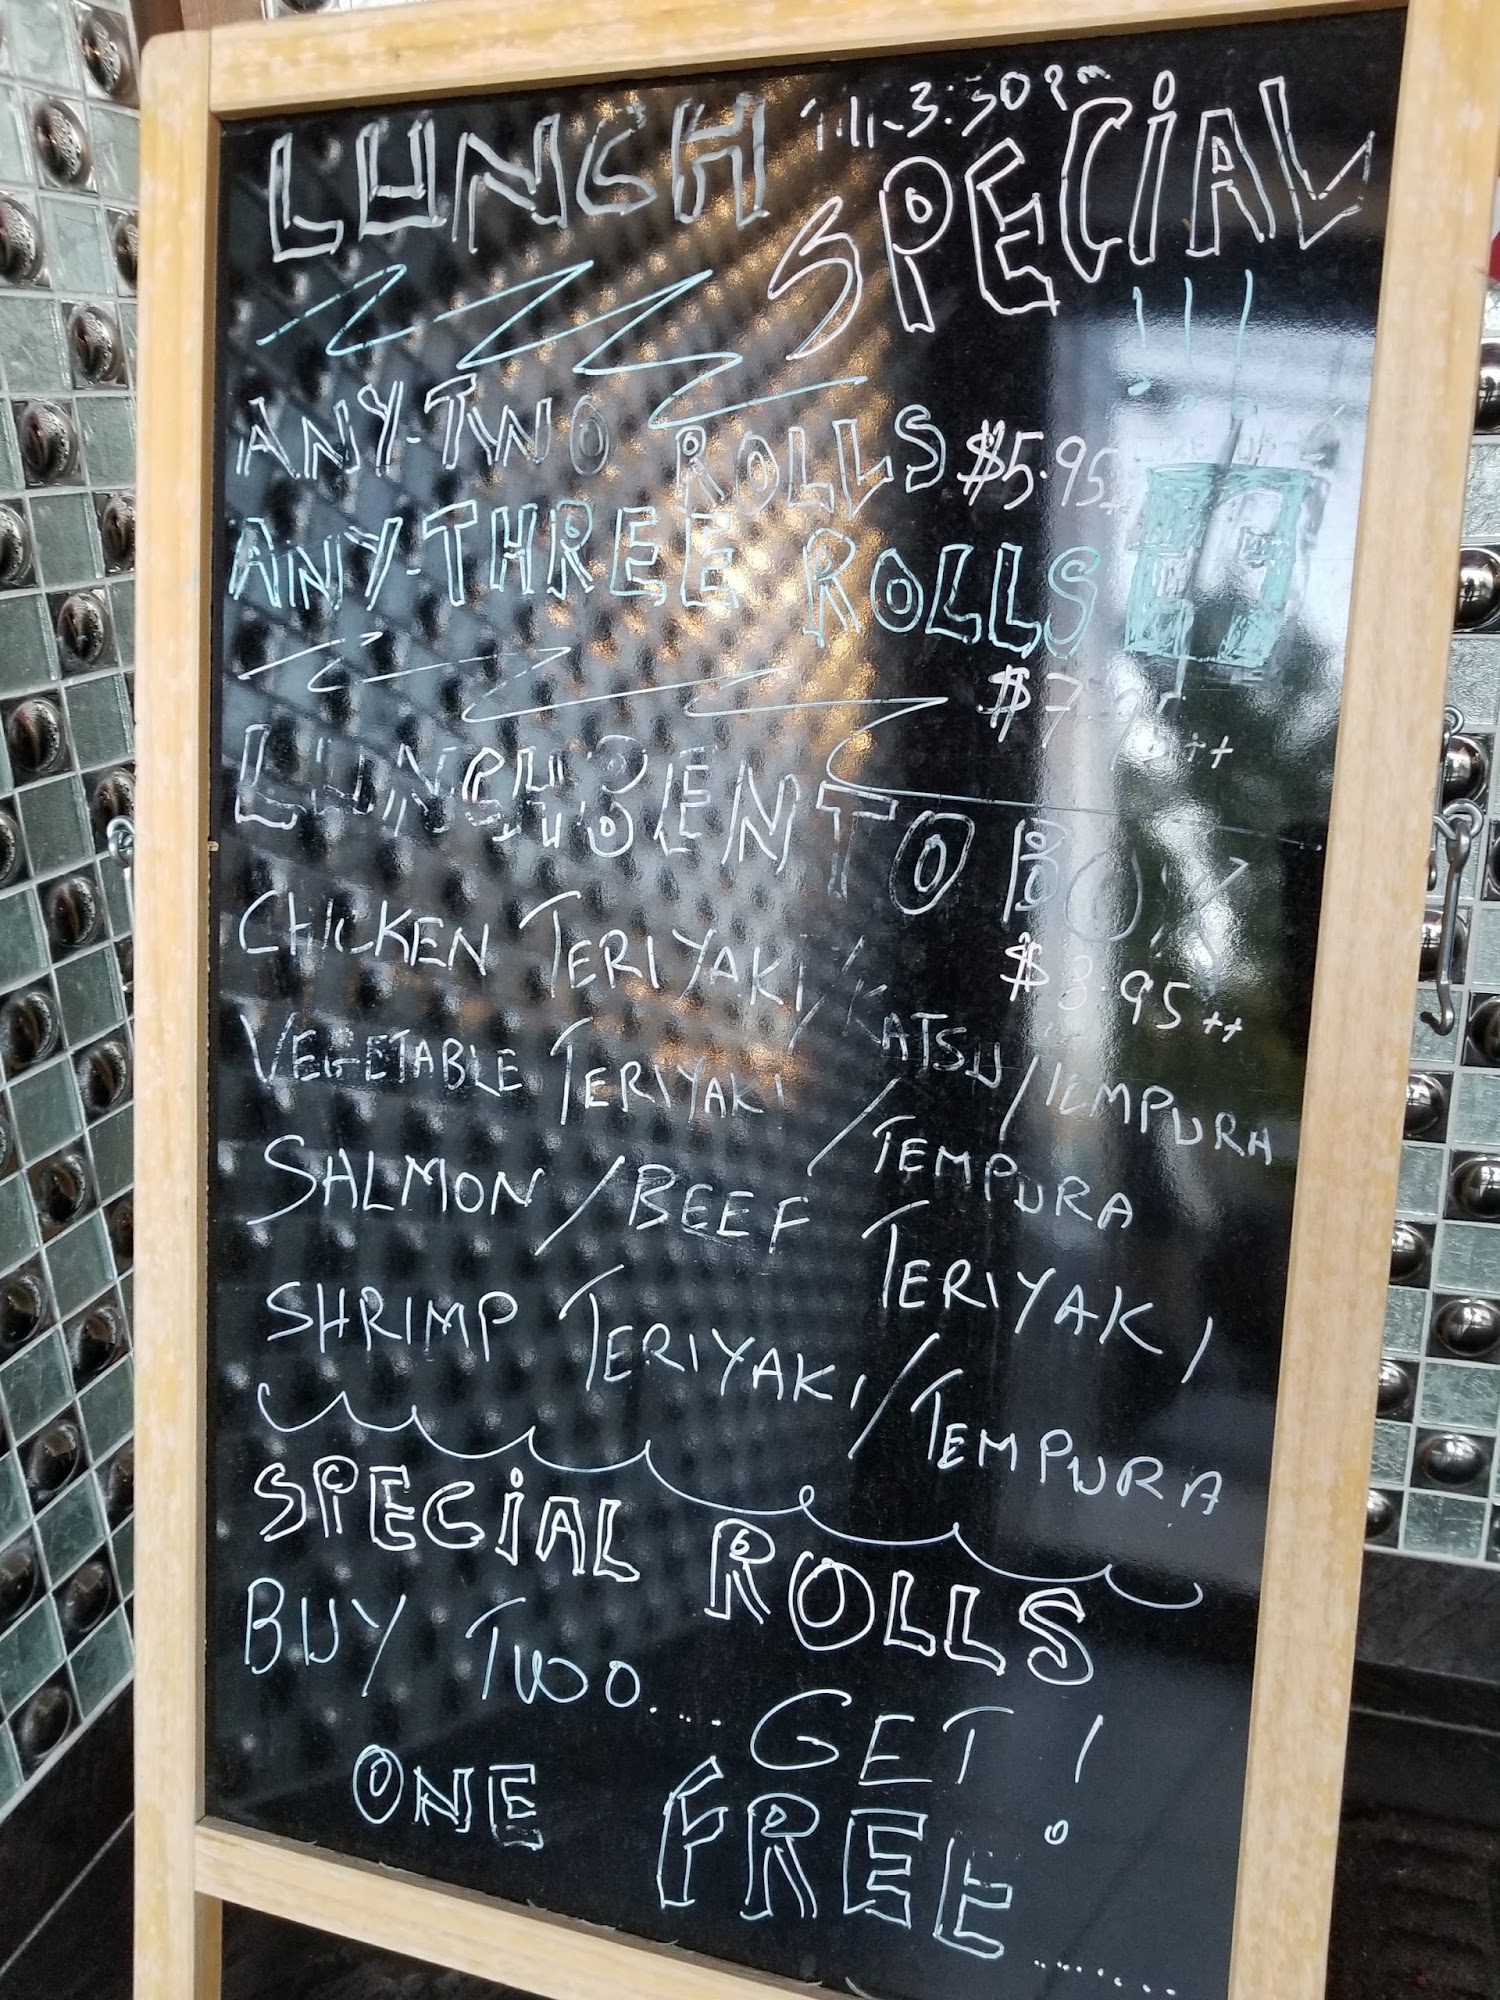 LUNCH TILL 3:30 PM
SPECIAL
!!!
ANY-TWO ROLLS $5.95
ANY-THREE ROLLS
$7.95++
LUNCH BENTO BOX
$8.95++
CHICKEN TERIYAKI / KATSU / TEMPURA
VEGETABLE TERIYAKI / TEMPURA
SALMON / BEEF TERIYAKI
SHRIMP TERIYAKI / TEMPURA
SPECIAL ROLLS
BUY TWO..... GET !
ONE FREE........